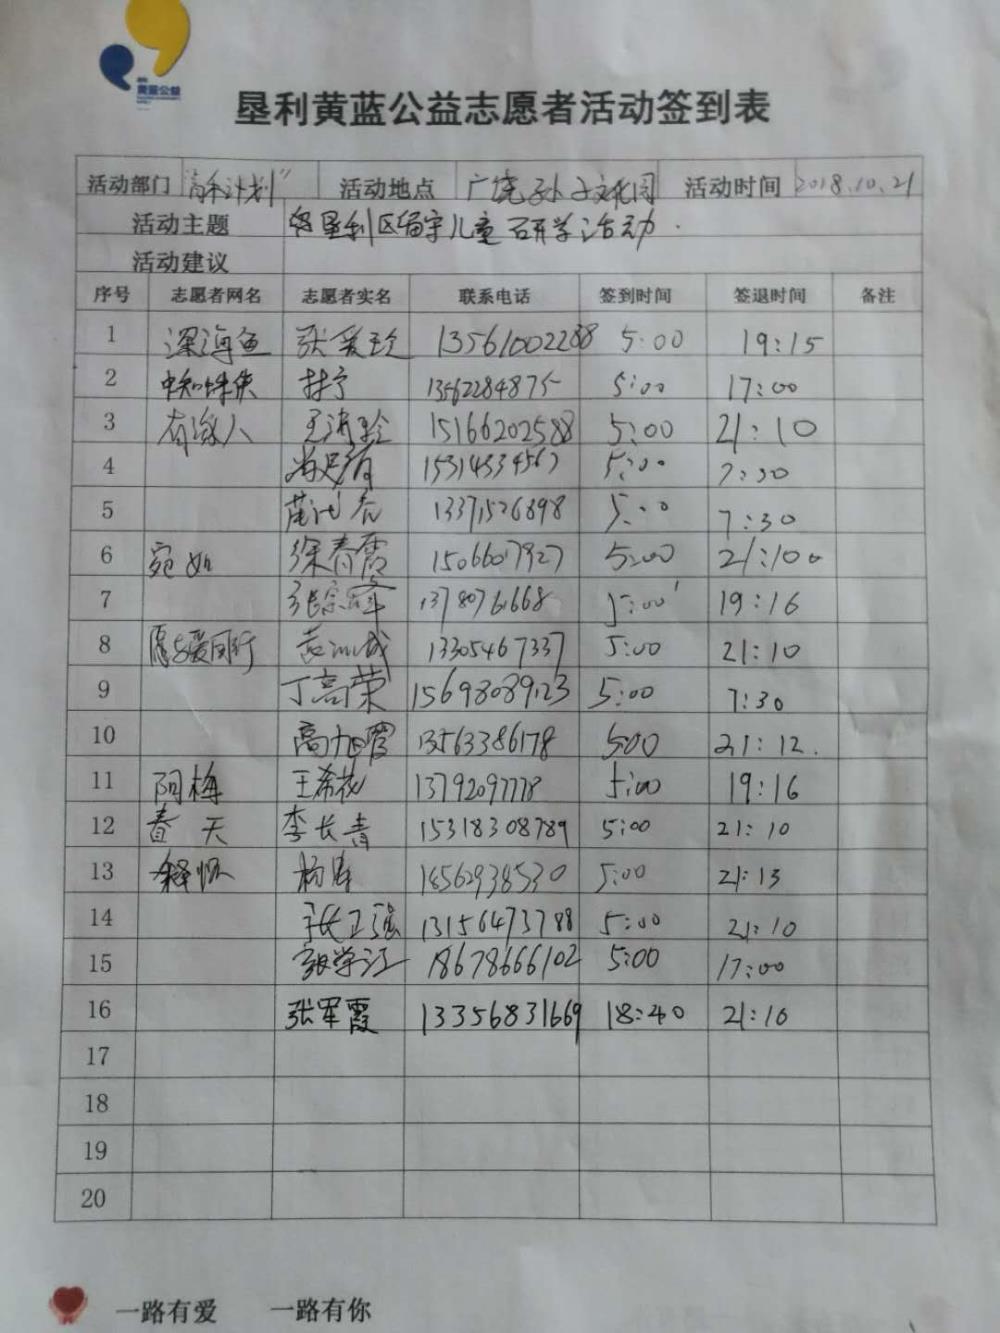 黄蓝公益
垦利黄蓝公益志愿者活动签到表
活动部门 "青禾计划" 活动地点 广饶孙子文化园 活动时间 2018.10.21
活动主题 垦利区留守儿童研学活动.
活动建议
序号 志愿者网名 志愿者实名 联系电话 签到时间 签退时间 备注
1 深海鱼 张爱玲 13561002288 5:00 19:15
2 蜘蛛侠 13562284875 5:00 17:00
3 有缘人 15166202588 5:00 21:10
4 15314334567 5:00 7:30
5 13371526898 5:00 7:30
6 宛如 徐春霞 15066017927 5:00 21:10
7 13780761668 5:00 19:16
8 愿与爱同行 13305467337 5:00 21:10
9 丁高荣 15698089123 5:00 7:30
10 13563386178 5:00 21:12.
11 阿梅 王希花 13792097778 5:00 19:16
12 春天 李长青 15318308789 5:00 21:10
13 释怀 18562938530 5:00 21:13
14 张卫强 13156473788 5:00 21:10
15 18678666102 5:00 17:00
16 张军霞 13356831669 18:40 21:10
17
18
19
20
一路有爱 一路有你